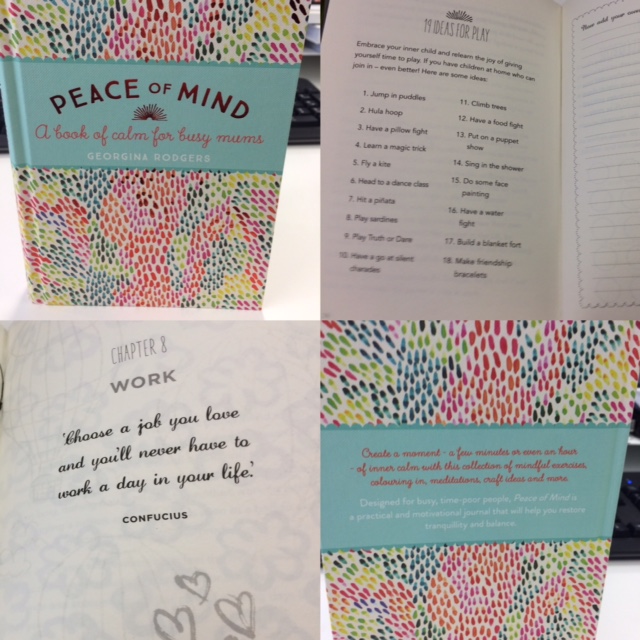 PEACE OF MIND
A book of calm for busy mums
GEORGINA RODGERS
19 IDEAS FOR PLAY
Embrace your inner child and relearn the joy of giving
yourself time to play. If you have children at home who can
join in – even better! Here are some ideas:
1. Jump in puddles
2. Hula hoop
3. Have a pillow fight
4. Learn a magic trick
5. Fly a kite
6. Head to a dance class
7. Hit a piñata
8. Play sardines
9. Play Truth or Dare
10. Have a go at silent
charades
11. Climb trees
12. Have a food fight
13. Put on a puppet
show
14. Sing in the shower
15. Do some face
painting
16. Have a water
fight
17. Build a blanket fort
18. Make friendship
bracelets
CHAPTER 8
WORK
'Choose a job you love
and you'll never have to
work a day in your life.'
CONFUCIUS
Create a moment - a few minutes or even an hour
- of inner calm with this collection of mindful exercises,
colouring in, meditations, craft ideas and more.
Designed for busy, time-poor people, Peace of Mind is
a practical and motivational journal that will help you restore
tranquillity and balance.